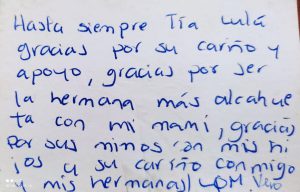 Hasta siempre Tía Lulá
gracias por su cariño y
apoyo, gracias por ser
la hermana más alcahue
ta con mi mamí, gracias
por sus mimos con mis hi
jos y su cariño conmigo
y mis hermanas